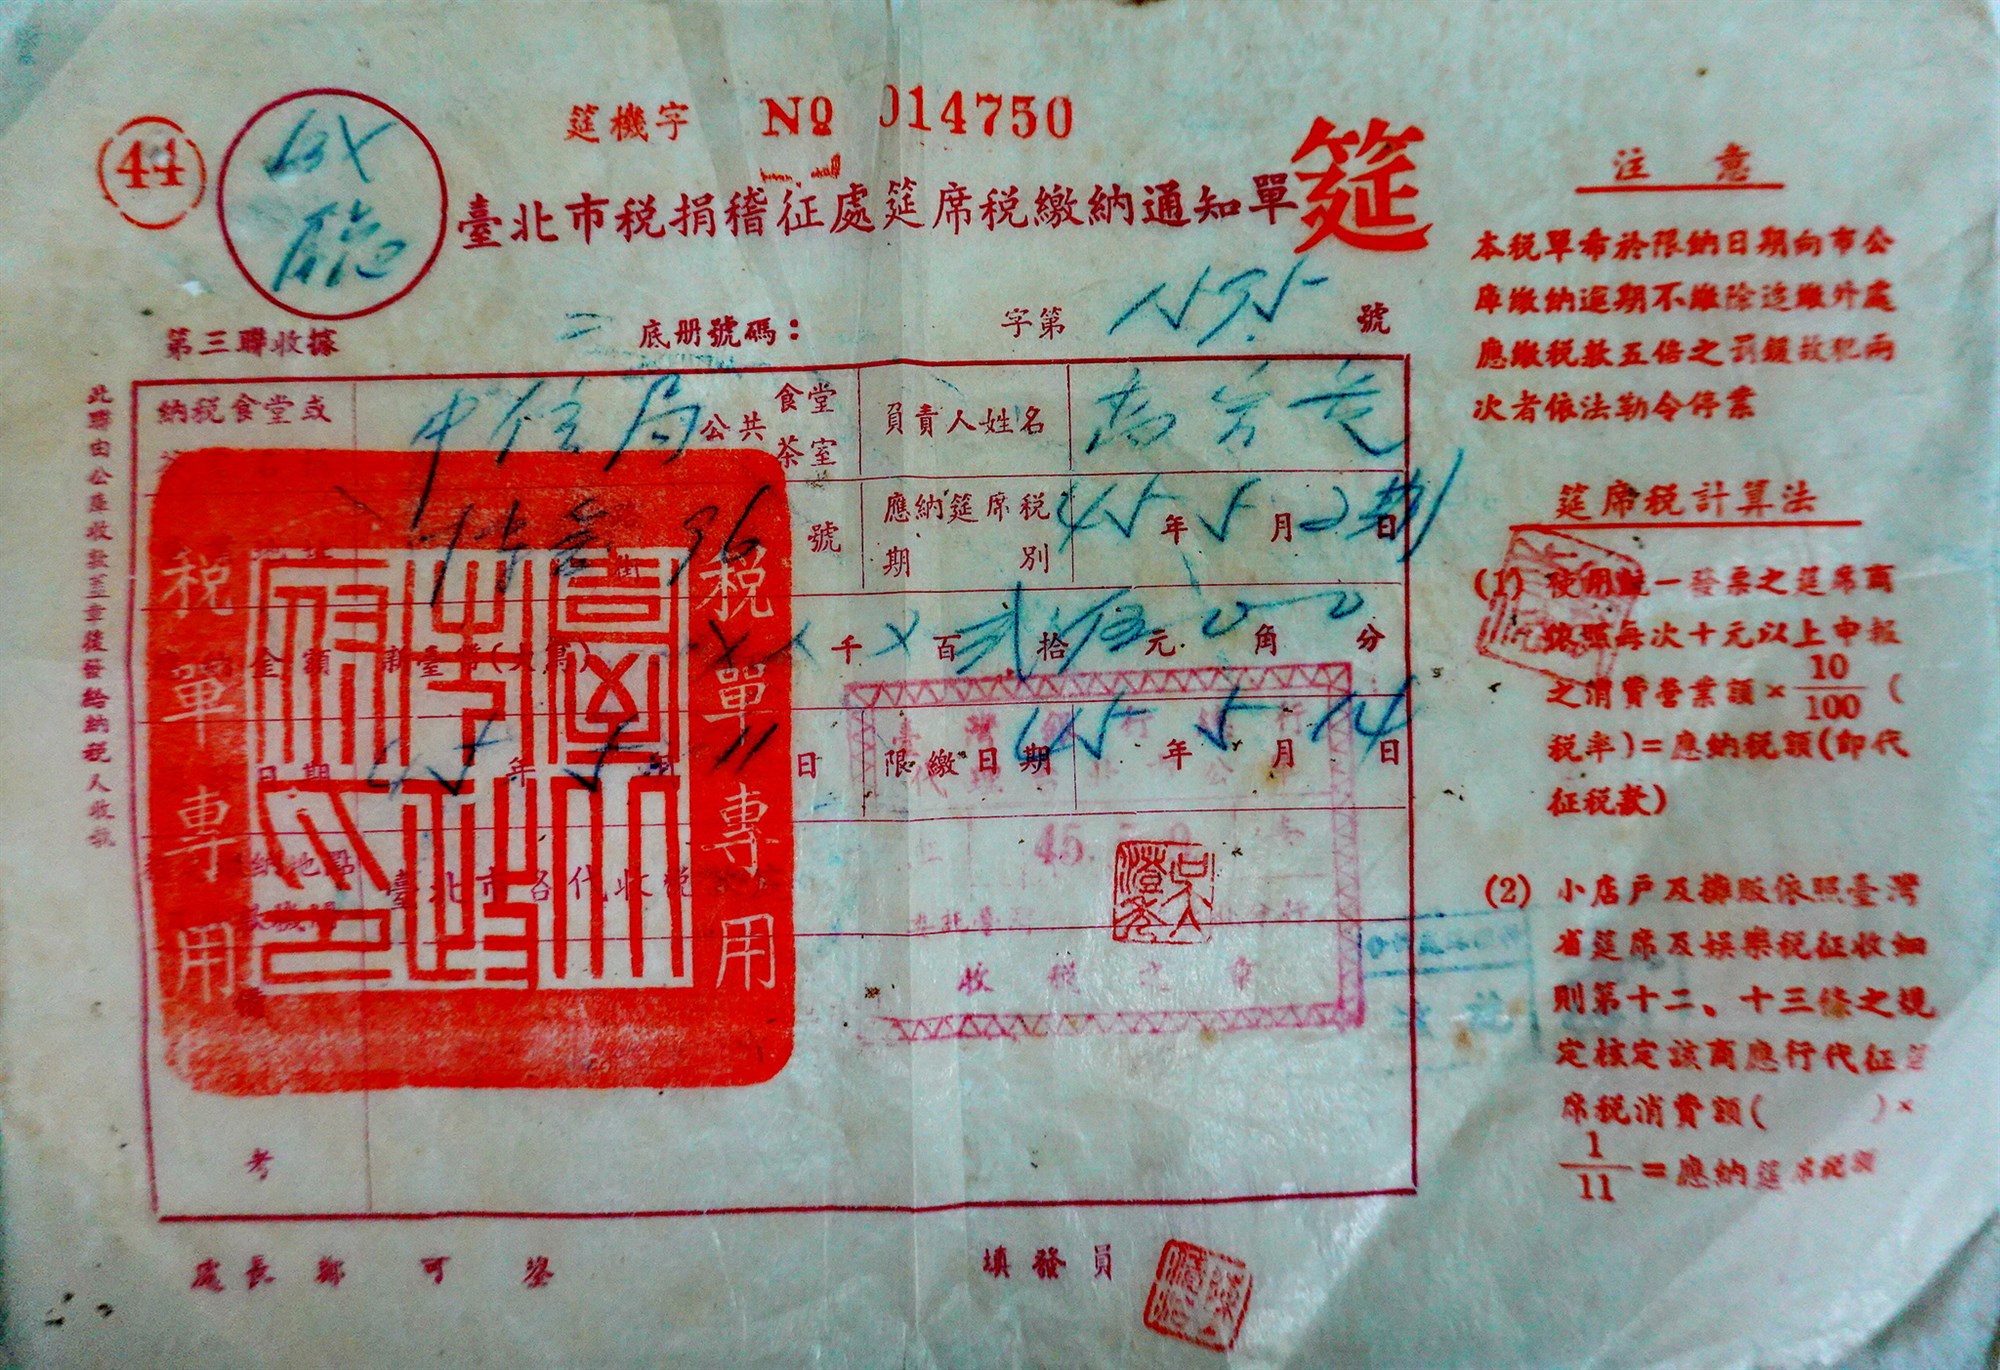 44
筵機字 No 014750
臺北市稅捐稽征處筵席稅繳納通知單
筵
第三聯收據
底册號碼：
字第 號
此聯由公庫收款蓋章後發給納稅人收執
納稅食堂或
中信局
公共
食堂
茶室
負責人姓名
號
應納筵席稅
期別
45年5月 日
金額
千 百貳拾伍元 角 分
45年5月11日
限繳日期
45年5月14日
納地點
臺北市各代收稅
考
稅單專用
稅單專用
收稅之章
處長鄭
填發員
注意
本稅單希於限納日期向市公
庫繳納逾期不繳除追繳外處
應繳稅款五倍之罰鍰故犯兩
次者依法勒令停業
筵席稅計算法
(1) 使用統一發票之筵席商
依照每次十元以上申報
之消費營業額×10/100（
稅率)＝應納稅額(即代
征稅款)
(2) 小店戶及攤販依照臺灣
省筵席及娛樂稅征收細
則第十二、十三條之規
定核定該商應行代征筵
席稅消費額( )×
1/11＝應納筵席稅額